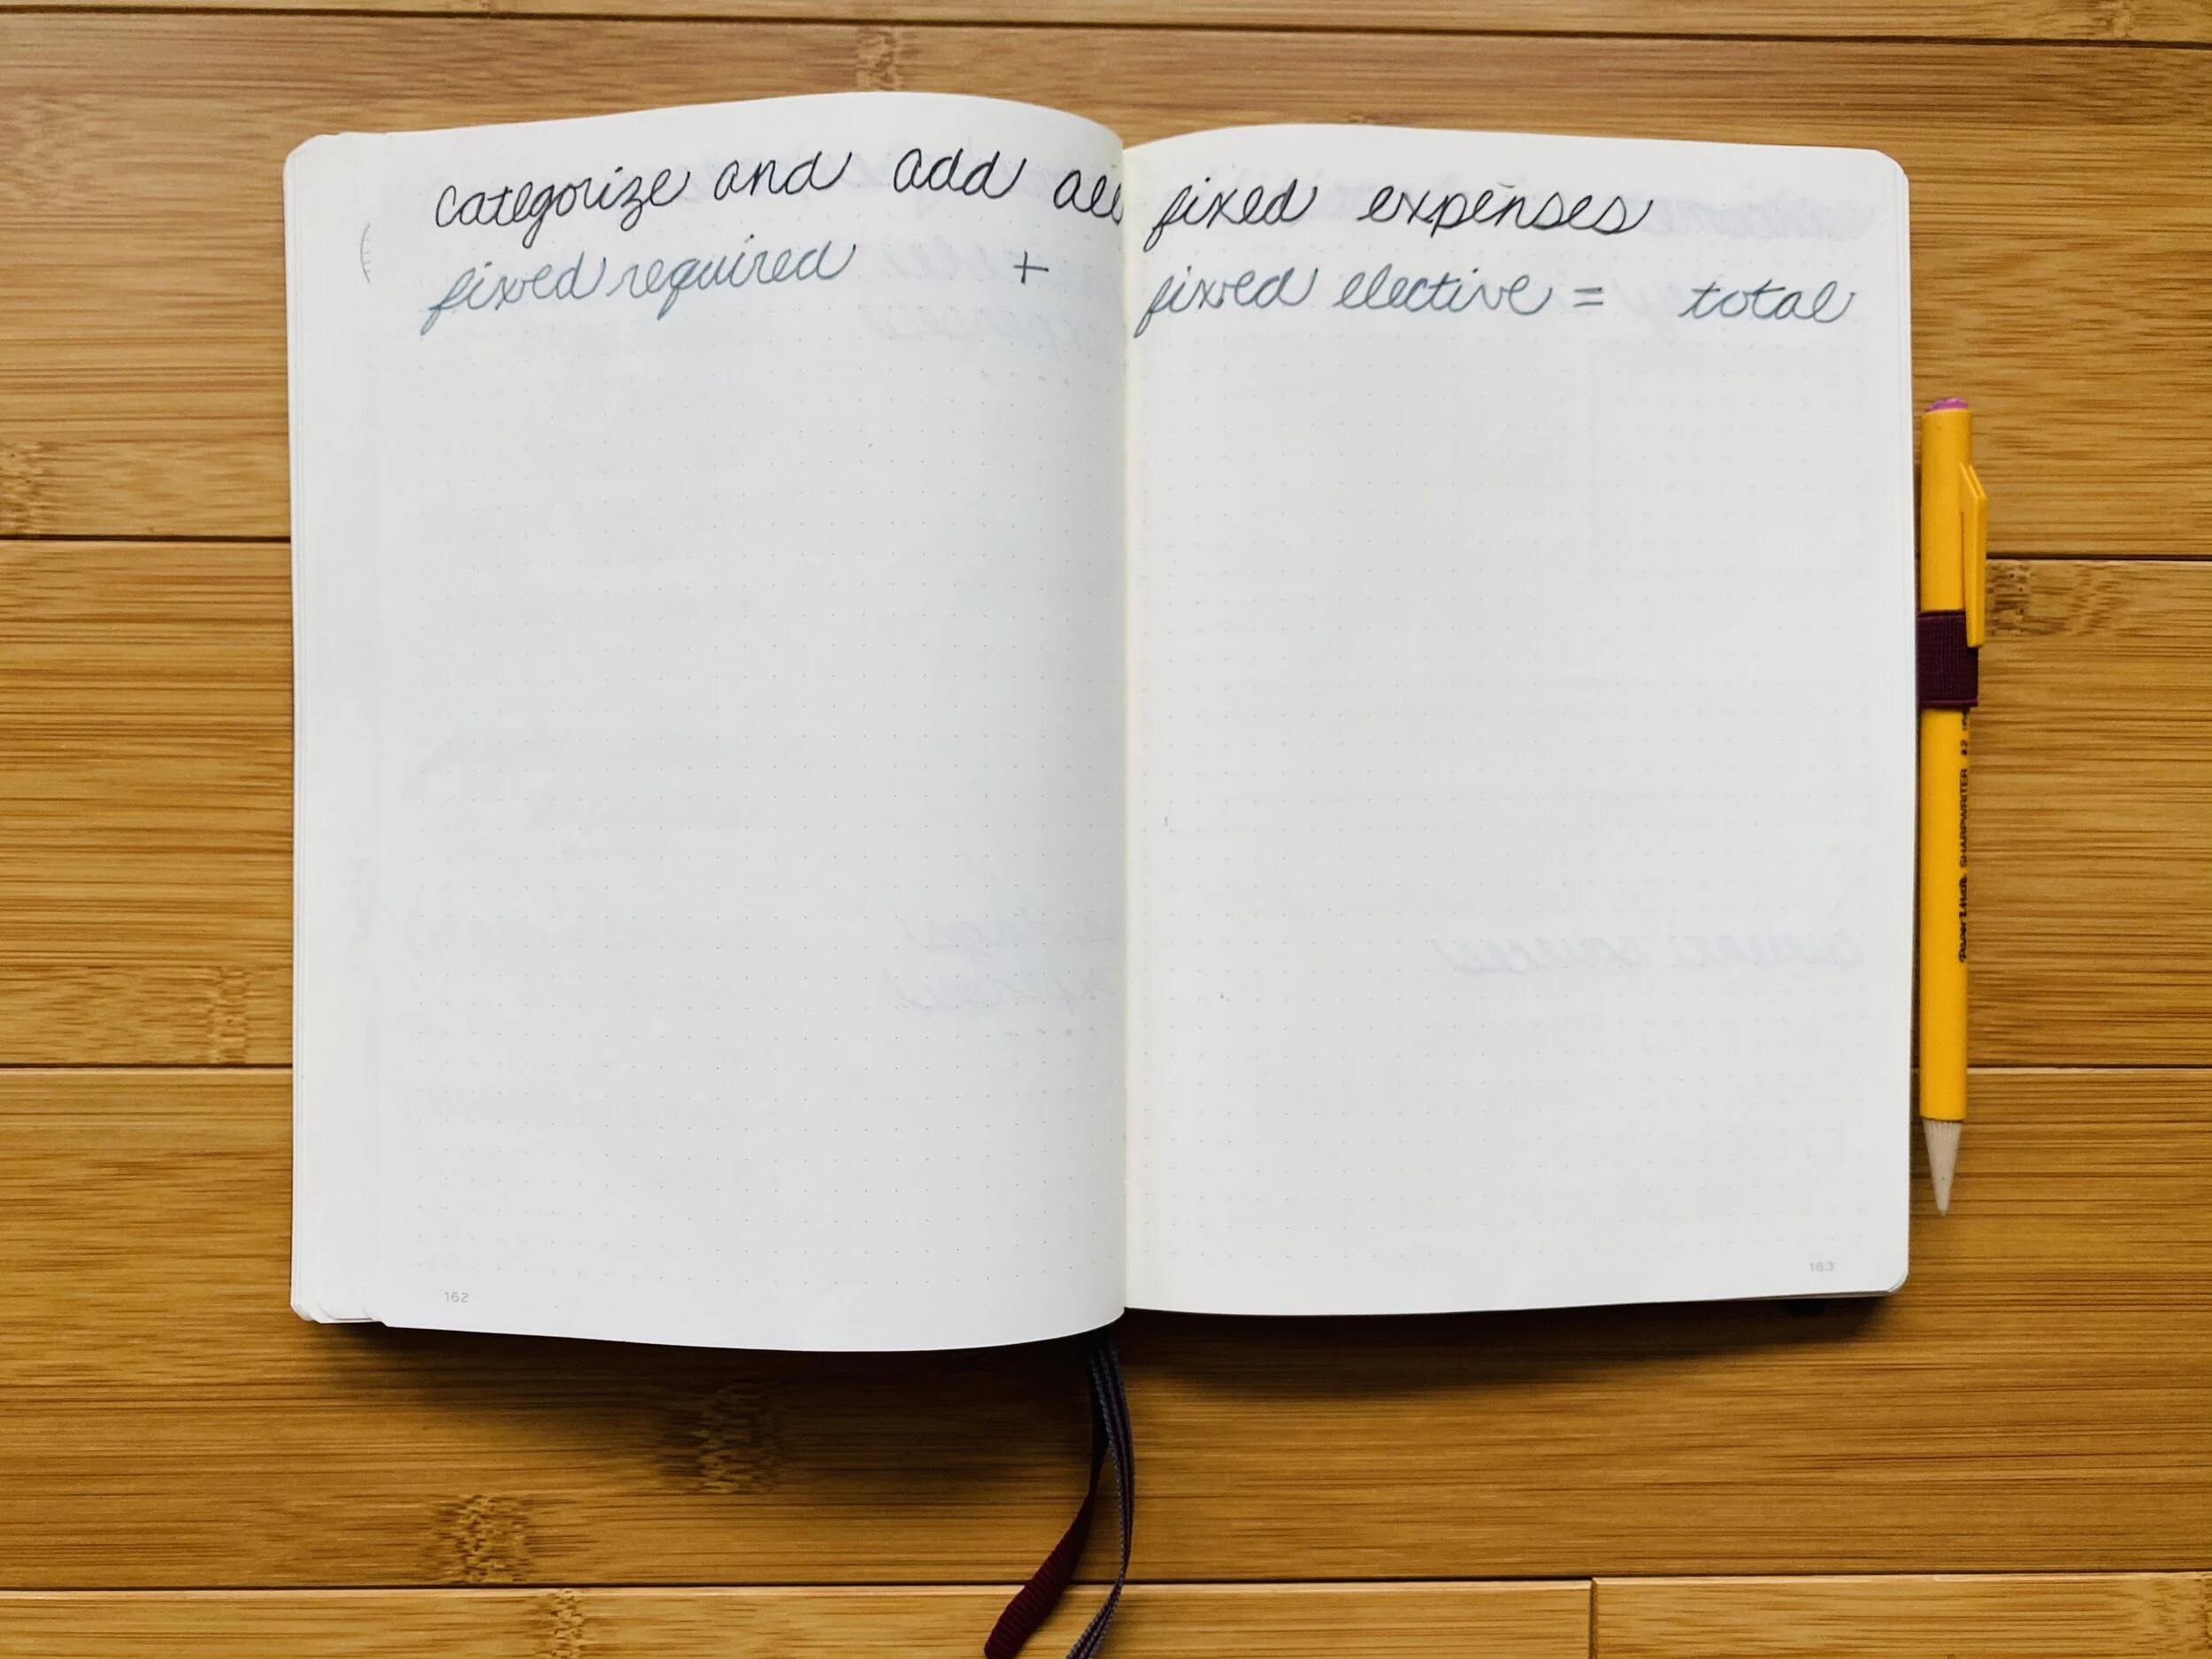 categorize and add all fixed expenses
fixed required + fixed elective = total
Paper Mate SHARPWRITER #2
162
163